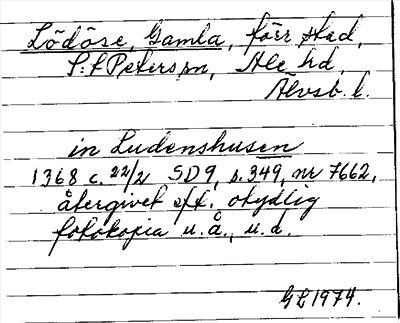 Lödöse, Gamla, förr stad,
S:t Peters sn, Ale hd,
Älvsb. l.
in Ludenshusen
1368 c. 22/2 SD9, s. 349, nr 7662,
återgivet eft. otydlig
fotokopia u.å., u.d.
GL1974.